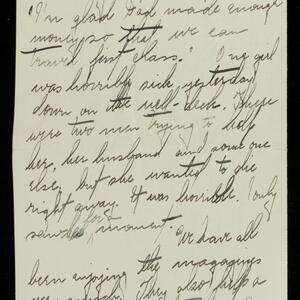 "I'm glad Dad made enough
money so that we can
travel first class." One girl
was horribly sick yesterday
down on the well-deck. There
were two men trying to help
her, her husband and someone
else, but she wanted to die
right away. It was horrible. I only
saw her for a moment.
We have all
been enjoying the magazines
They also help a